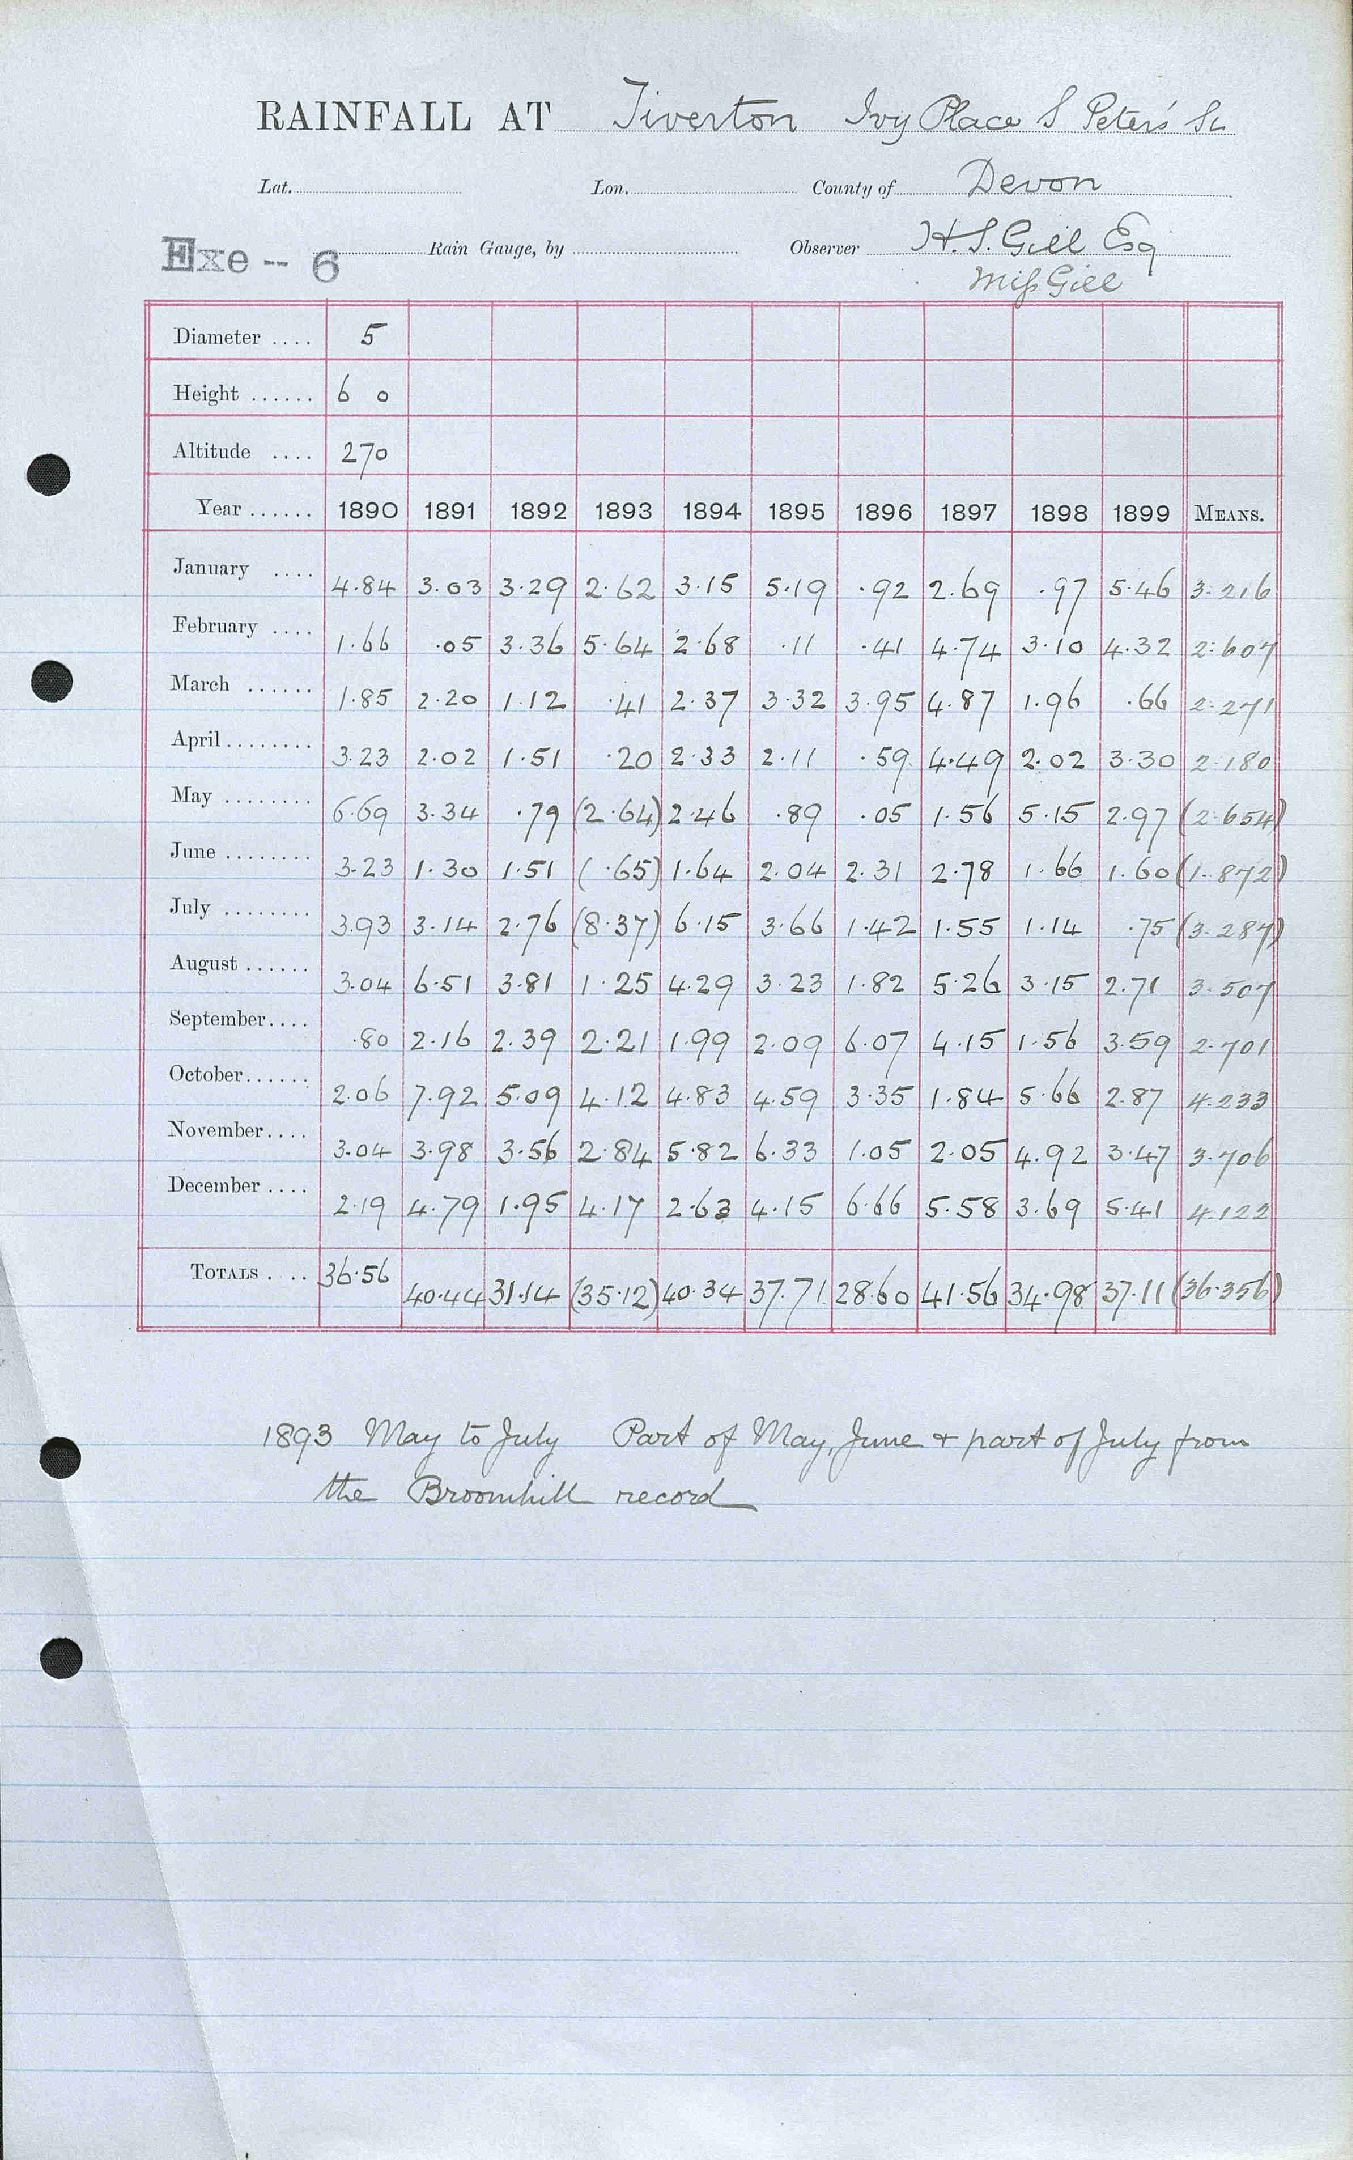 RAINFALL AT Tiverton Ivy Place S Peters' St
Lat. Lon. County of Devon
Exe -- 6 Rain Gauge, by Observer H.S. Gill Esq
Miss Gill
Diameter .... 5
Height ...... 6 0
Altitude .... 270
Year ...... 1890 1891 1892 1893 1894 1895 1896 1897 1898 1899 MEANS.
January .... 4.84 3.03 3.29 2.62 3.15 5.19 .92 2.69 .97 5.46 3.216
February .... 1.66 .05 3.36 5.64 2.68 .11 .41 4.74 3.10 4.32 2.607
March ...... 1.85 2.20 1.12 .41 2.37 3.32 3.95 4.87 1.96 .66 2.271
April ........ 3.23 2.02 1.51 .20 2.33 2.11 .59 4.49 2.02 3.30 2.180
May ........ 6.69 3.34 .79 (2.64) 2.46 .89 .05 1.56 5.15 2.97 (2.654)
June ........ 3.23 1.30 1.51 (.65) 1.64 2.04 2.31 2.78 1.66 1.60 (1.872)
July ........ 3.93 3.14 2.76 (8.37) 6.15 3.66 1.42 1.55 1.14 .75 (3.287)
August ...... 3.04 6.51 3.81 1.25 4.29 3.23 1.82 5.26 3.15 2.71 3.507
September.... .80 2.16 2.39 2.21 1.99 2.09 6.07 4.15 1.56 3.59 2.701
October...... 2.06 7.92 5.09 4.12 4.83 4.59 3.35 1.84 5.66 2.87 4.233
November.... 3.04 3.98 3.56 2.84 5.82 6.33 1.05 2.05 4.92 3.47 3.706
December .... 2.19 4.79 1.95 4.17 2.63 4.15 6.66 5.58 3.69 5.41 4.122
TOTALS .... 36.56 40.44 31.14 (35.12) 40.34 37.71 28.60 41.56 34.98 37.11 (36.356)
1893 May to July Part of May, June + part of July from
the Broomhill record